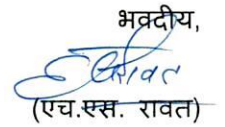 भवदीय,
(एच.एस. रावत)